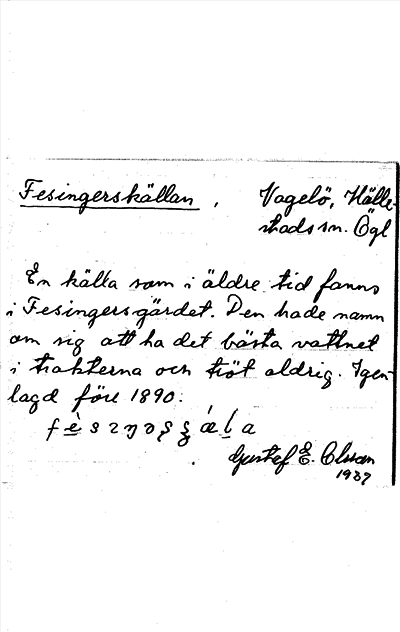 Fesingerskällan, Vagelö, Hälle-
stads sn. Ögl
En källa som i äldre tid fanns
i Fesingersgärdet. Den hade namn
om sig att ha det bästa vattnet
i trakterna och tröt aldrig. Igen-
lagd före 1890.
Gustef E. Olsson
1937